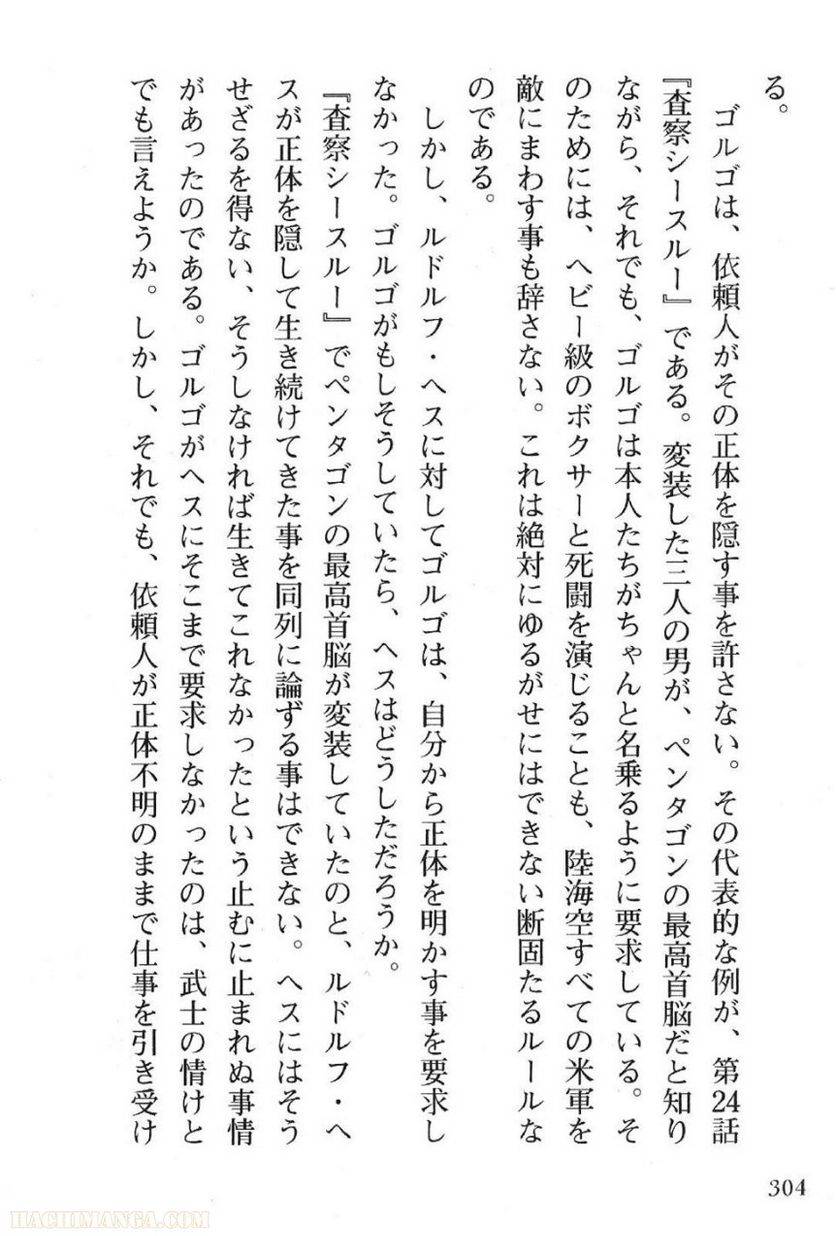 る。
ゴルゴは、依頼人がその正体を隠す事を許さない。その代表的な例が、第24話
『査察シースルー』である。変装した三人の男が、ペンタゴンの最高首脳だと知り
ながら、それでも、ゴルゴは本人たちがちゃんと名乗るように要求している。そ
のためには、ヘビー級のボクサーと死闘を演じることも、陸海空すべての米軍を
敵にまわす事も辞さない。これは絶対にゆるがせにはできない断固たるルールな
のである。
しかし、ルドルフ・ヘスに対してゴルゴは、自分から正体を明かす事を要求し
なかった。ゴルゴがもしそうしていたら、ヘスはどうしただろうか。
『査察シースルー』でペンタゴンの最高首脳が変装していたのと、ルドルフ・ヘ
スが正体を隠して生き続けてきた事を同列に論ずる事はできない。ヘスにはそう
せざるを得ない、そうしなければ生きてこれなかったという止むに止まれぬ事情
があったのである。ゴルゴがヘスにそこまで要求しなかったのは、武士の情けと
でも言えようか。しかし、それでも、依頼人が正体不明のままで仕事を引き受け
304
HACHIMANGA.COM